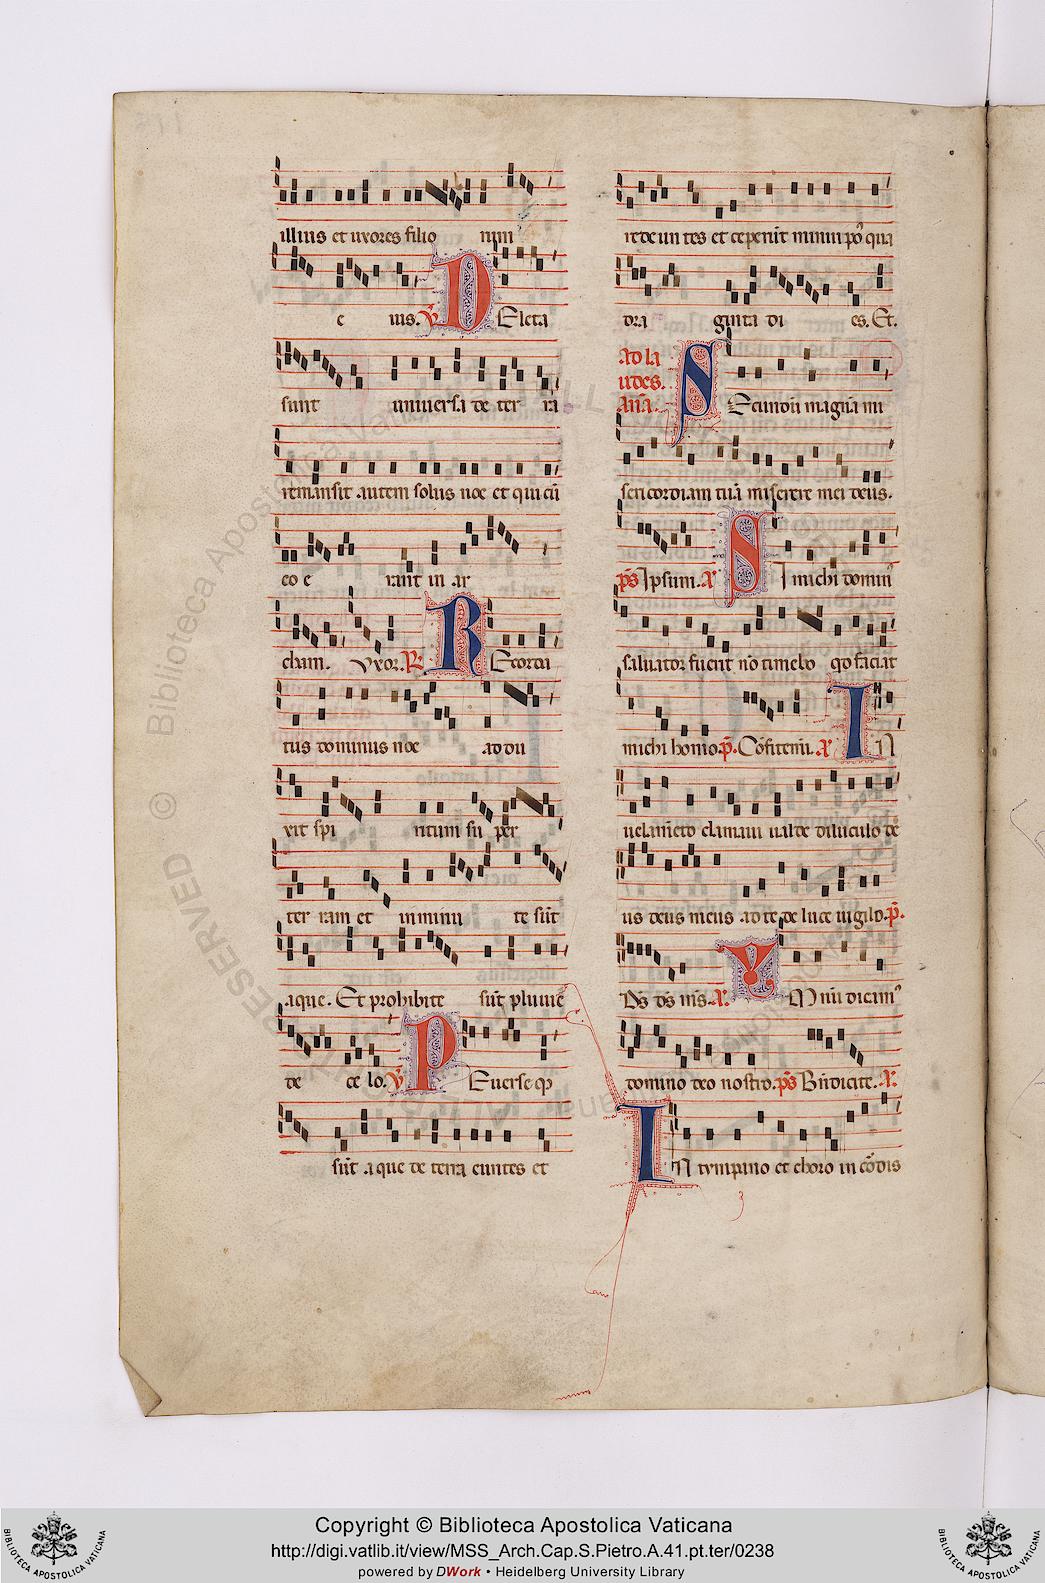 illius et uxores filio rum
e ius. V. Deleta
sunt universa de ter ra
remansit autem solus noe et qui cũ
eo e rant in ar
cham. Vxor. R. Recorda
tus dominus noe ad du
xit spi ritum su per
ter ram et inminu te sũt
aque. Et prohibite sũt pluuie
de ce lo. V. Reuerse q
sũt aque de terra euntes et
redeun tes et ceperũt minui pꝰ qua
dra ginta di es. Et.
ad la
udes.
Añа. Secundũ magnã mi
sericordiam tuã miserere mei deus.
p̃s Ipsum. A. Si michi dominꝰ
saluator fuerit nõ timebo qd faciat
michi homo. p̃. Cõfitemi. A. In
uelamẽto clamaui ualde diluculo de
us deus meus ad te de luce uigilo. p̃.
Ds ds ms. A. Ymnũ dicamꝰ
domino deo nostro. p̃s Bñdicite. A.
In tympano et choro in cõdis
RESERVED © Biblioteca Apostolica Vaticana
Copyright © Biblioteca Apostolica Vaticana
http://digi.vatlib.it/view/MSS_Arch.Cap.S.Pietro.A.41.pt.ter/0238
powered by DWork • Heidelberg University Library
BIBLIOTECA APOSTOLICA VATICANA
BIBLIOTECA APOSTOLICA VATICANA